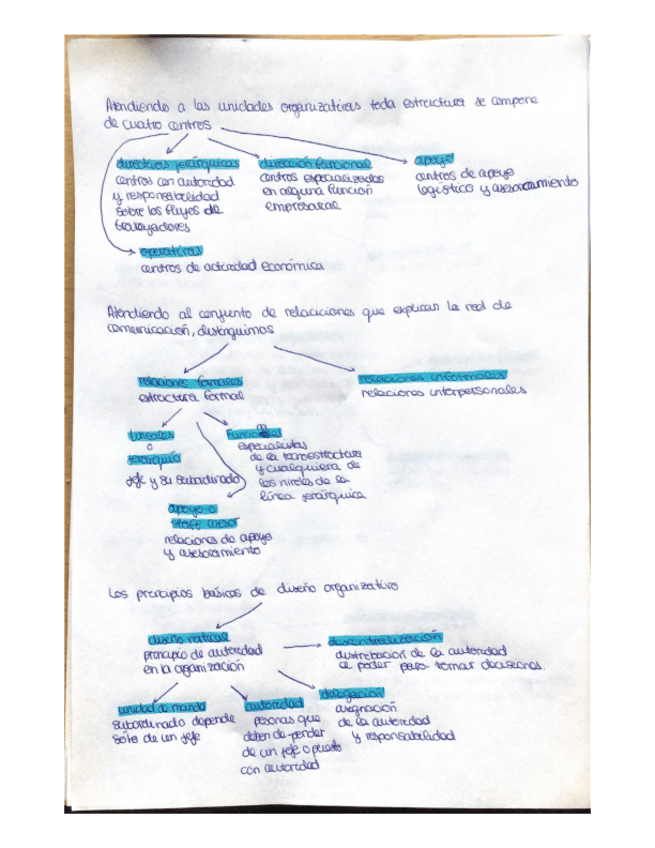 Atendiendo a las unidades organizativas toda estructura se compone
de cuatro centros
directivos jerárquicos
centros con autoridad
y responsabilidad
sobre los flujos de
trabajadores
dirección funcional
centros especializados
en alguna función
empresarial
apoyo
centros de apoyo
logístico y asesoramiento
operativos
centros de actividad económica
Atendiendo al conjunto de relaciciones que explican la red de
comunicación, distinguimos
relaciones formales
estructura formal
relaciones informales
relaciones interpersonales
lineales
o
jerarquía
Jefe y su subordinado
Funcionales
especialistas
de la
y cualquiera de
los niveles de la
línea jerárquica
apoyo o
staff asesor
relaciones de apoyo
y asesoramiento
Los principios básicos de diseño organizativo
diseño
principio de autoridad
en la organización
descentralización
distribución de la autoridad
al poder para tomar decisiones.
unidad de mando
subordinado depende
sólo de un jefe
autoridad
personas que
deben de pender
de un jefe o puesto
con autoridad
delegación
asignación
de la autoridad
y responsabilidad